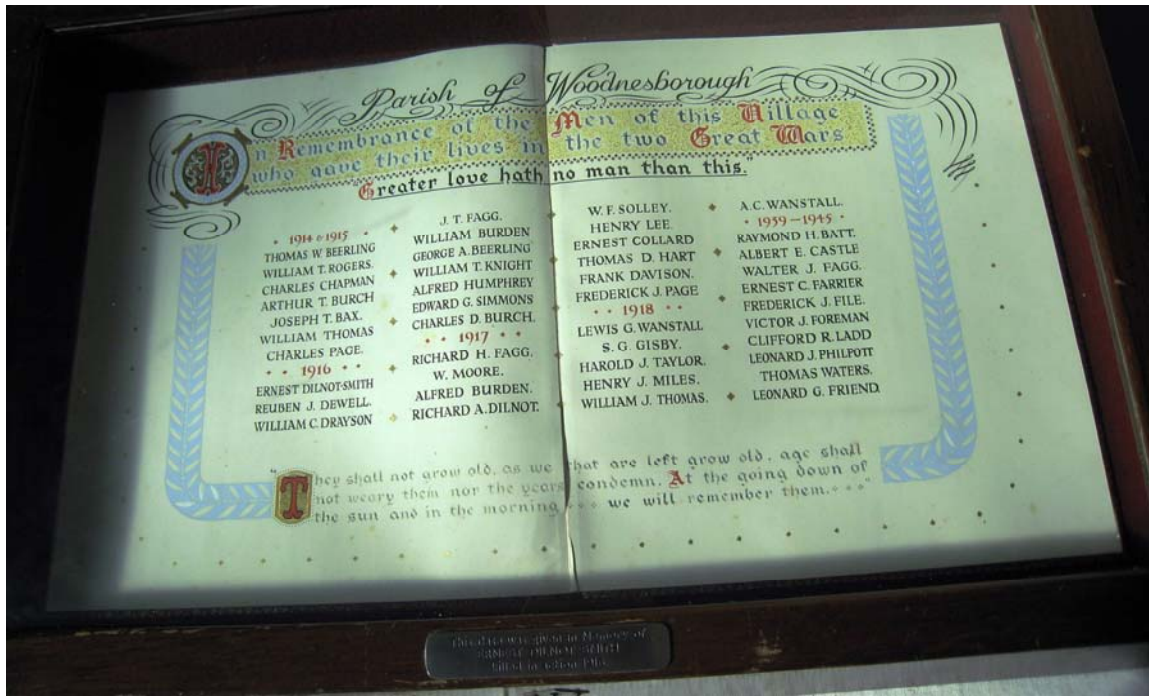 Parish of Woodnesborough
In Remembrance of the Men of this Village
who gave their lives in the two Great Wars
"Greater love hath no man than this."
• 1914 & 1915 •
THOMAS W. BEERLING
WILLIAM T. ROGERS.
CHARLES CHAPMAN
ARTHUR T. BURCH
JOSEPH T. BAX.
WILLIAM THOMAS
CHARLES PAGE.
• • 1916 • •
ERNEST DILNOT-SMITH
REUBEN J. DEWELL.
WILLIAM C. DRAYSON
J. T. FAGG.
WILLIAM BURDEN
GEORGE A. BEERLING
WILLIAM T. KNIGHT
ALFRED HUMPHREY
EDWARD G. SIMMONS
CHARLES D. BURCH.
• • 1917 • •
RICHARD H. FAGG.
W. MOORE.
ALFRED BURDEN.
RICHARD A. DILNOT.
W. F. SOLLEY.
HENRY LEE.
ERNEST COLLARD
THOMAS D. HART
FRANK DAVISON.
FREDERICK J. PAGE
• • 1918 • •
LEWIS G. WANSTALL
S. G. GISBY.
HAROLD J. TAYLOR.
HENRY J. MILES.
WILLIAM J. THOMAS.
A. C. WANSTALL.
• 1939 – 1945 •
RAYMOND H. BATT.
ALBERT E. CASTLE
WALTER J. FAGG.
ERNEST C. FARRIER
FREDERICK J. FILE.
VICTOR J. FOREMAN
CLIFFORD R. LADD
LEONARD J. PHILPOTT
THOMAS WATERS.
LEONARD G. FRIEND.
"They shall not grow old, as we that are left grow old, age shall
not weary them nor the years condemn. At the going down of
the sun and in the morning • • • we will remember them. • • •"
This was given in Memory of
ERNEST DILNOT SMITH
Killed in action 1916